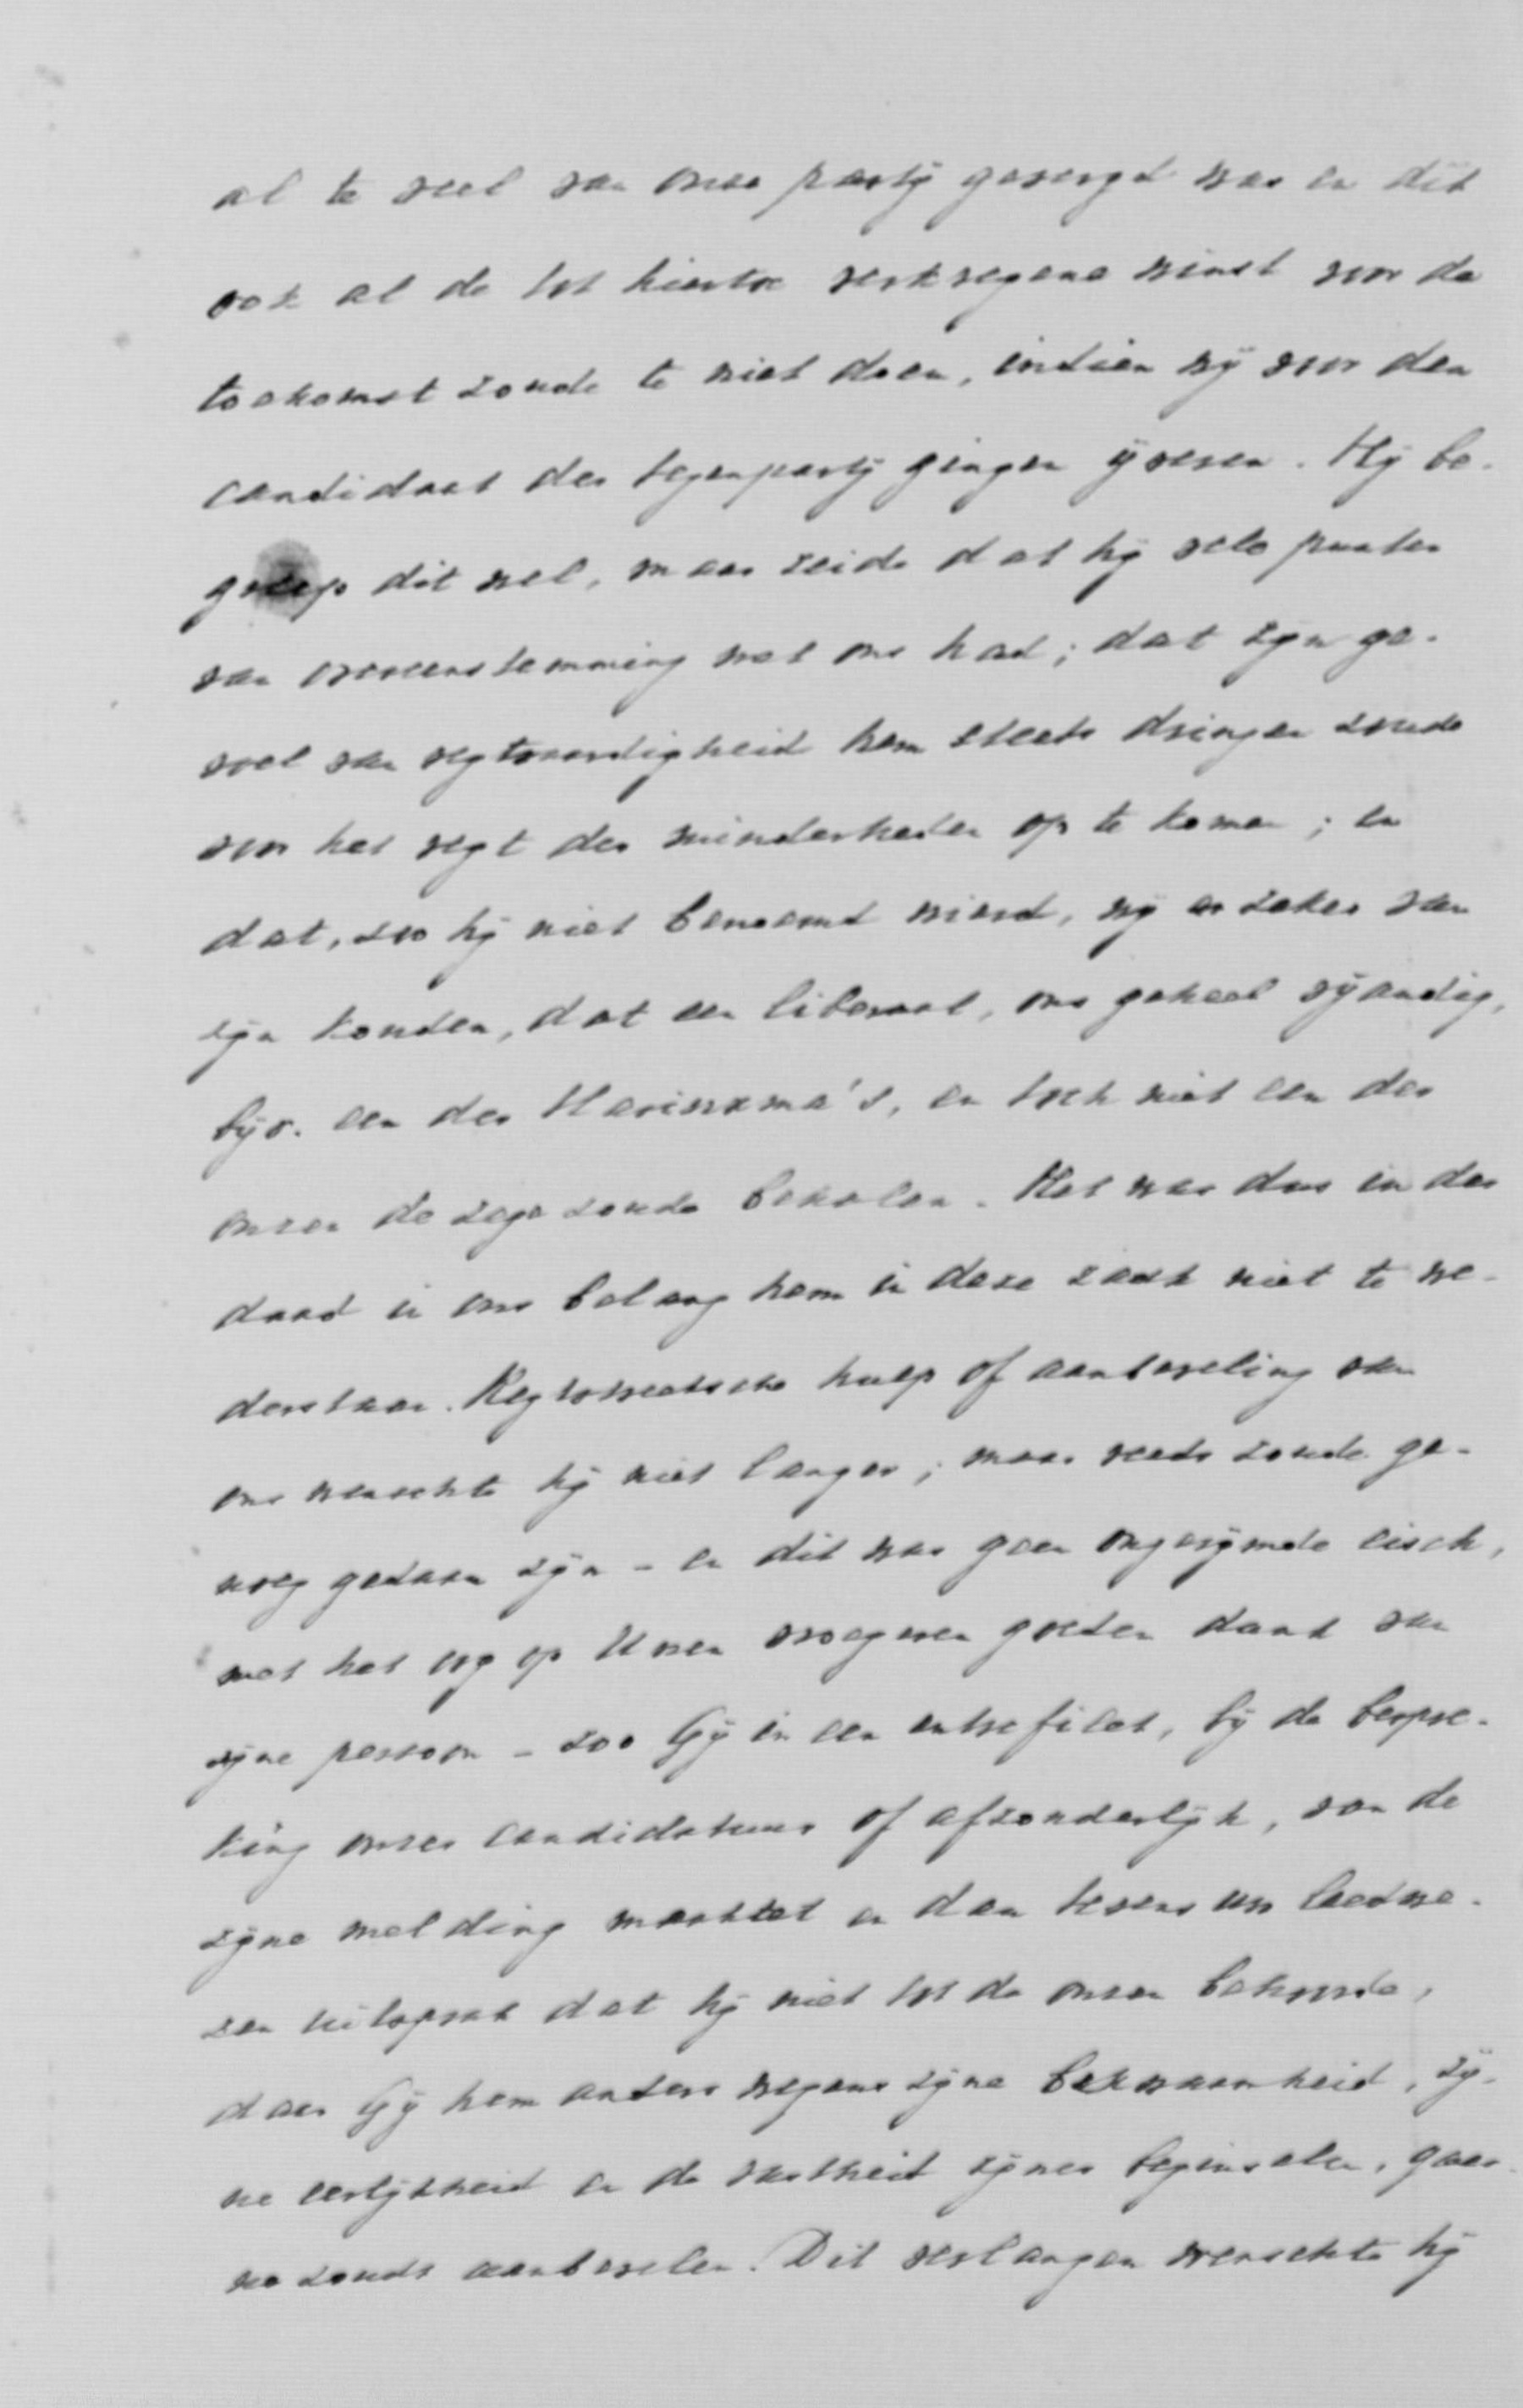 al te veel van onze partij gevergd was en dit
ook al de tot hiertoe verkregene winst voor de
toekomst zoude te niet doen, indien wij voor den
candidaat der tegenpartij gingen ijveren. Hij be-
greep dit wel, maar zeide dat hij vele punten
van overeenstemming met ons had; dat zijn ge-
voel van regtvaardigheid hem steeds dringen zoude
voor het regt der minderheden op te komen; en
dat, zoo hij niet benoemd wierd, wij er zeker van
zijn konden, dat een liberaal, ons geheel vijandig,
bijv. een der Harinxma's, en toch niet een der
onzen de zege zoude behalen. Het was dus in der
daad in ons belang hem in deze zaak niet te we-
derstaan. Regtstreeksche hulp of aanbeveling van
ons wenschte hij niet langer; maar reeds zoude ge-
noeg gedaan zijn - en dit was geen ongerijmde eisch,
met het oog op Uwen vroegeren goeden dunk van
zijne persoon - zoo Gij in een entrefilet, bij de bespre-
king onzer candidaturen of afzonderlijk, van de
zijne melding maaktet en dan tevens uw leedwe-
zen uitspraakt dat hij niet tot de onzen behoorde,
daar Gij hem anders wegens zijne bekwaamheid, zij-
ne eerlijkheid en de vastheid zijner beginselen, gaar-
ne zoudt aanbevelen. Dit verlangen wenschte hij